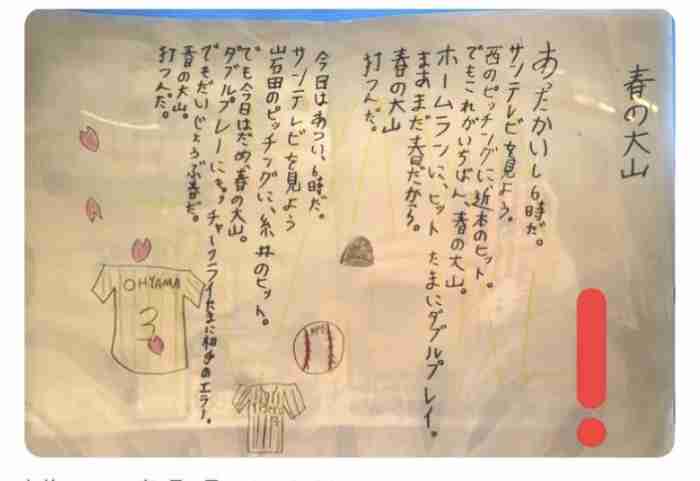 春の大山
あったかいし6時だ。
サンテレビを見よう。
西のピッチングに、近本のヒット。
でもこれがいちばん、春の大山。
ホームランに、ヒット たまにダブルプレイ。
まあまだ春だから。
春の大山
打つんだ。
今日はあつい、6時だ。
サンテレビを見よう
岩田のピッチングに、糸井のヒット。
でも今日はだめ、春の大山。
ダブルプレーにキャッチャーフライたまに相手のエラー。
でもだいじょうぶ春だ。
春の大山。
打つんだ。
OHYAMA
3